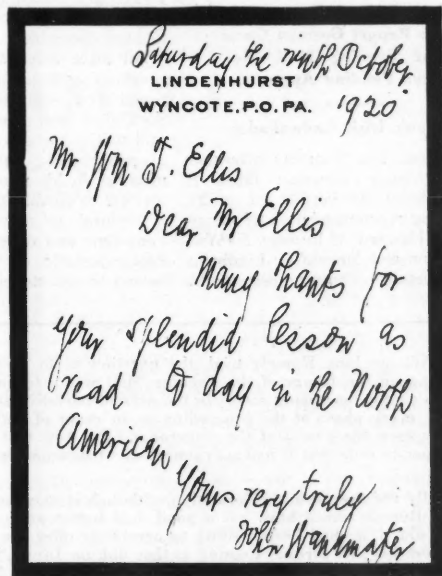 Saturday the ninth October
LINDENHURST
WYNCOTE. P.O. PA.
1920
Mr Wm T. Ellis
Dear Mr Ellis
Many thanks for
your splendid lesson as
read to day in the North
American
Yours very truly
John Wanamaker